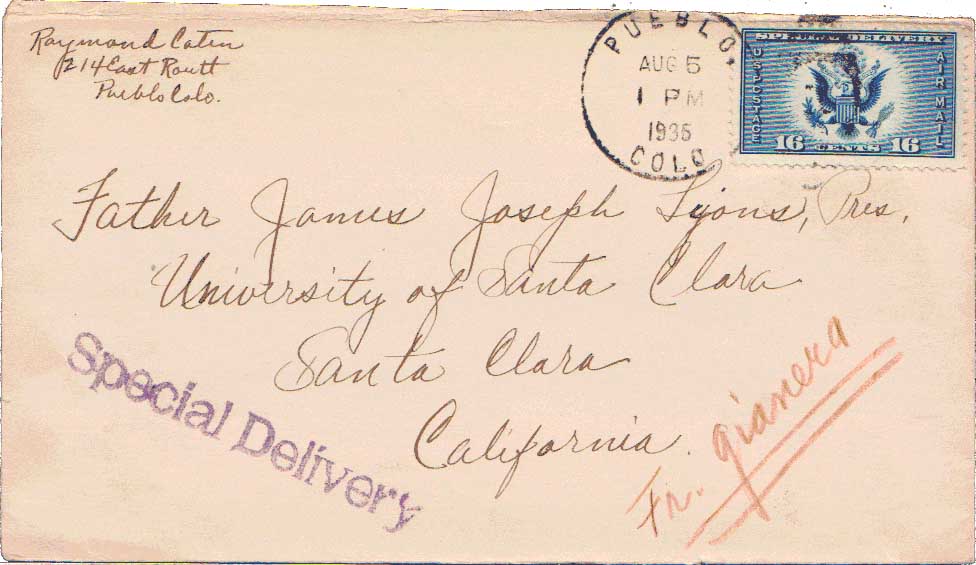 Raymond Caten
214 East Routt
Pueblo Colo.
PUEBLO,
AUG 5
1 PM
1935
COLO
SPECIAL DELIVERY
U.S. POSTAGE
AIR MAIL
16 CENTS 16
Father James Joseph Lyons, Pres.
University of Santa Clara
Santa Clara
California.
Special Delivery
Fr. gianera